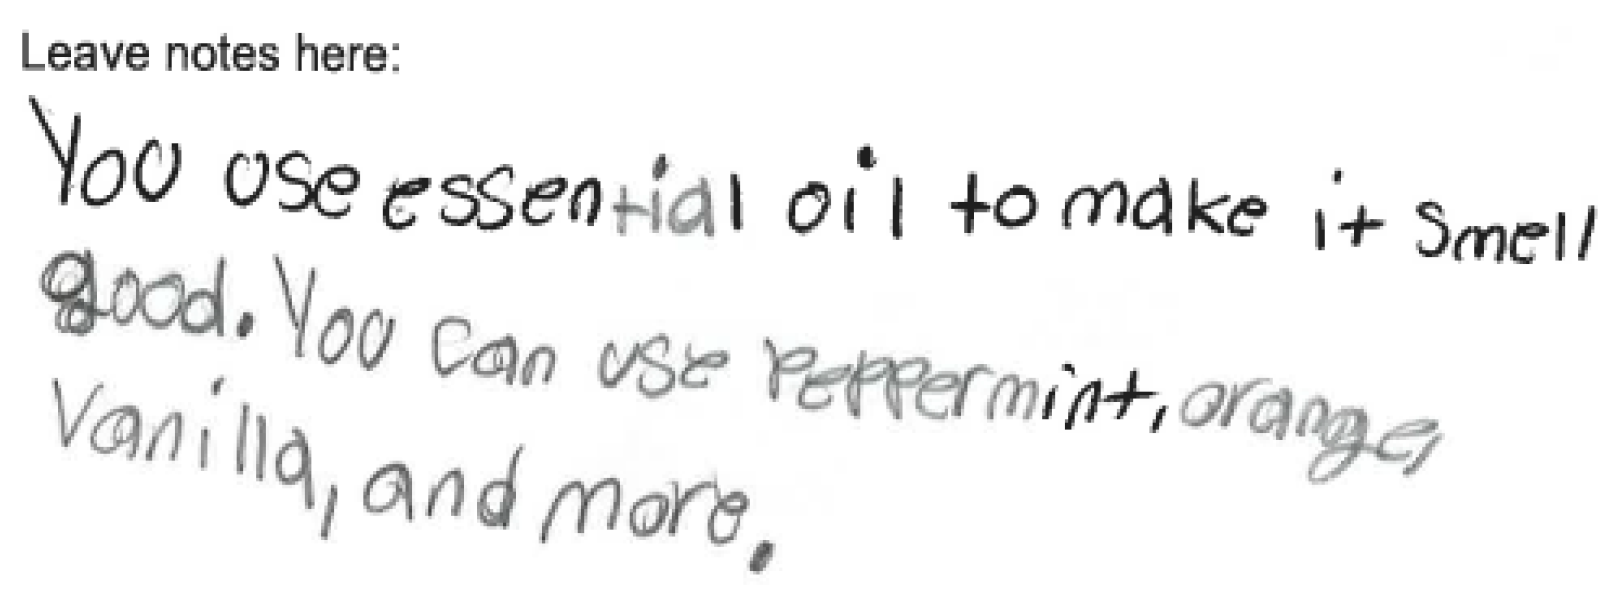 Leave notes here:
You use essential oil to make it smell
good. You can use peppermint, orange,
Vanilla, and more.